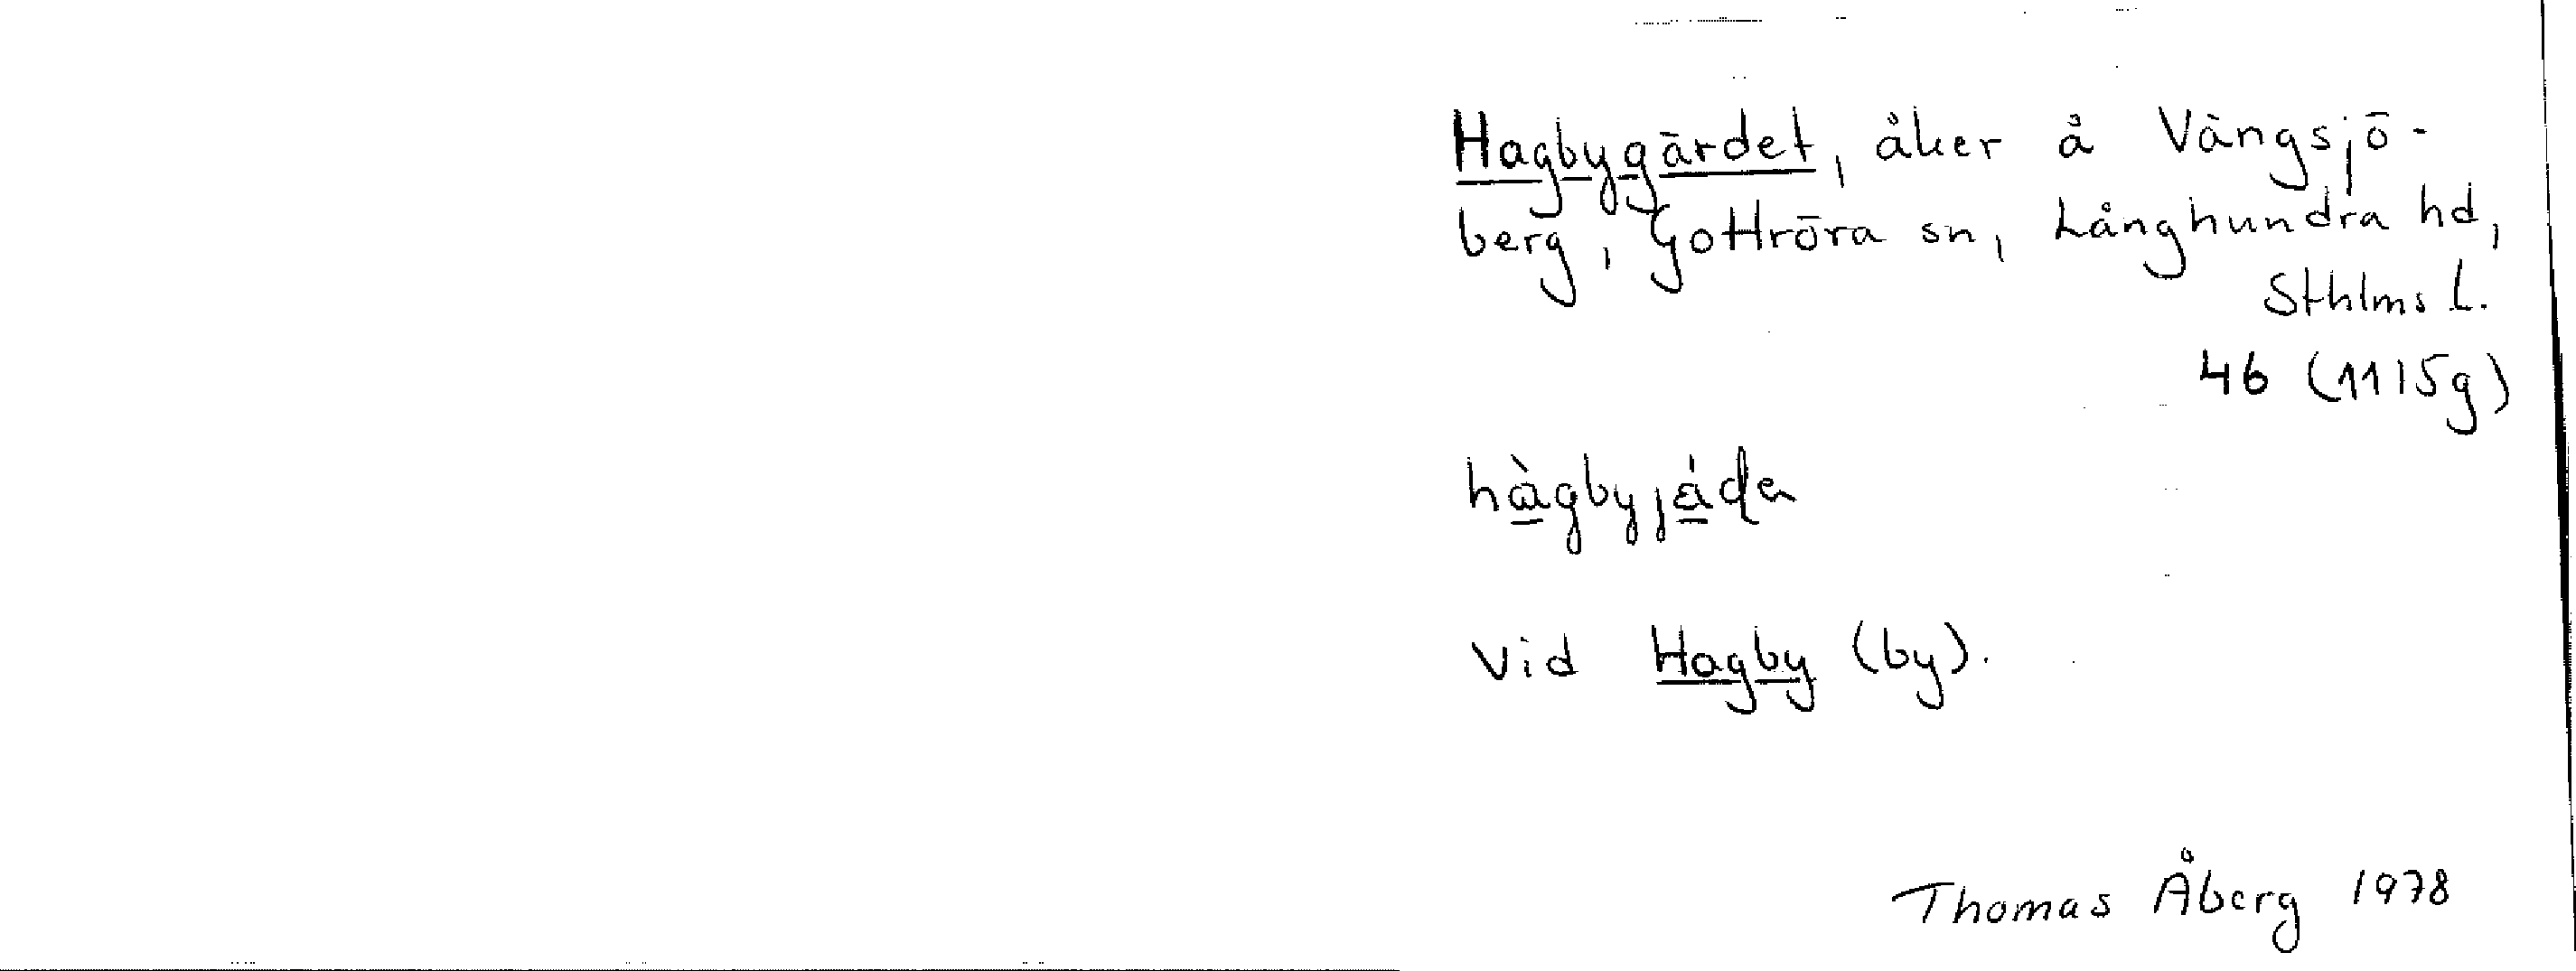 Hagbygärdet, åker å Vängsjö-
berg, Gottröra sn, Långhundra hd,
Sthlms l.
46 (1115g)
hàgbyjáda
Vid Hagby (by).
Thomas Åberg 1978